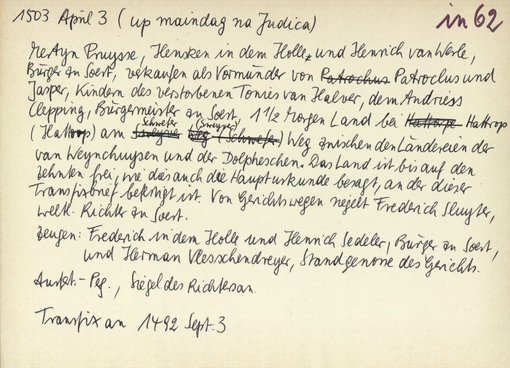 1503 April 3 (up maindag na Judica)
in 62
Pruysse, Hensken in dem Holle, und Henrich van Werle,
Bürger zu Soest, verkaufen als Vormünder von Patroclus Patroclus und
Jasper, Kindern des verstorbenen Tonies van Halver, dem Andriess
Clepping, Bürgermeister zu Soest, 1 1/2 Morgen Land bei Hattrop
(Hattrop) am Schwefer (Sweyver) Weg (Schwefer) Weg zwischen den Ländereien der
van Weynchuysen und der Dolpheschen. Das Land ist bis auf den
Zehnten frei, wie das auch die Haupturkunde besagt, an der dieser
Transfixbrief befestigt ist. Von Gerichtswegen siegelt Frederich Sluyter,
weltl. Richter zu Soest.
Zeugen: Frederich in dem Holle und Henrich Sedeler, Bürger zu Soest,
und Herman Vlesschendreyer, Standgenosse des Gerichts.
Ausf. - Pg., Siegel des Richters an
Transfix an 1492 Sept. 3